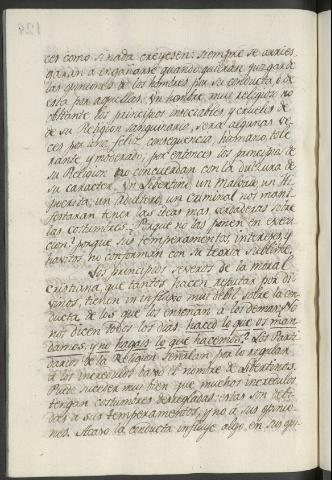 124
ces como si nada creyesen: siempre se arries-
garán a engañarse quando quieran juzgar de
las opiniones de los hombres por su conducta, ó de
esta por aquellas. Un hombre muy religioso no
obstante los principios insociables y crueles de
de su Religion sanguinaria, será algunas ve-
ces por una feliz consequencia, humano, tole
rante y moderado; por entonces los principios de
su Religion no concuerdan con la dulzura de
su caracter. Un Libertino, un Malvado, un Hi-
pocrita, un adultero, un criminal nos mani-
festaran tener las ideas mas verdaderas sobre
las costumbres. Porque no las ponen en execu-
cion? porque sus temperamentos, intereses y
habitos no conforman con su teoria sublime.
Los principios severos de la moral
cristiana, que tantos hacen reputar por di-
vinos, tienen un influxo muy debil sobre la con-
ducta de los que los enseñan á los demas. No
nos dicen todos los dias, haced lo que os man-
damos, y no hagais lo que hacemos? Los Parti-
darios de la Religion señalan por lo regular
á los incredulos baxo el nombre de Libertinos.
Puede suceder muy bien que muchos incredulos
tengan costumbres desregladas: estas son debi-
das á sus temperamentos, y no á sus opinio-
nes. Acaso la conducta influye algo en sus opi-